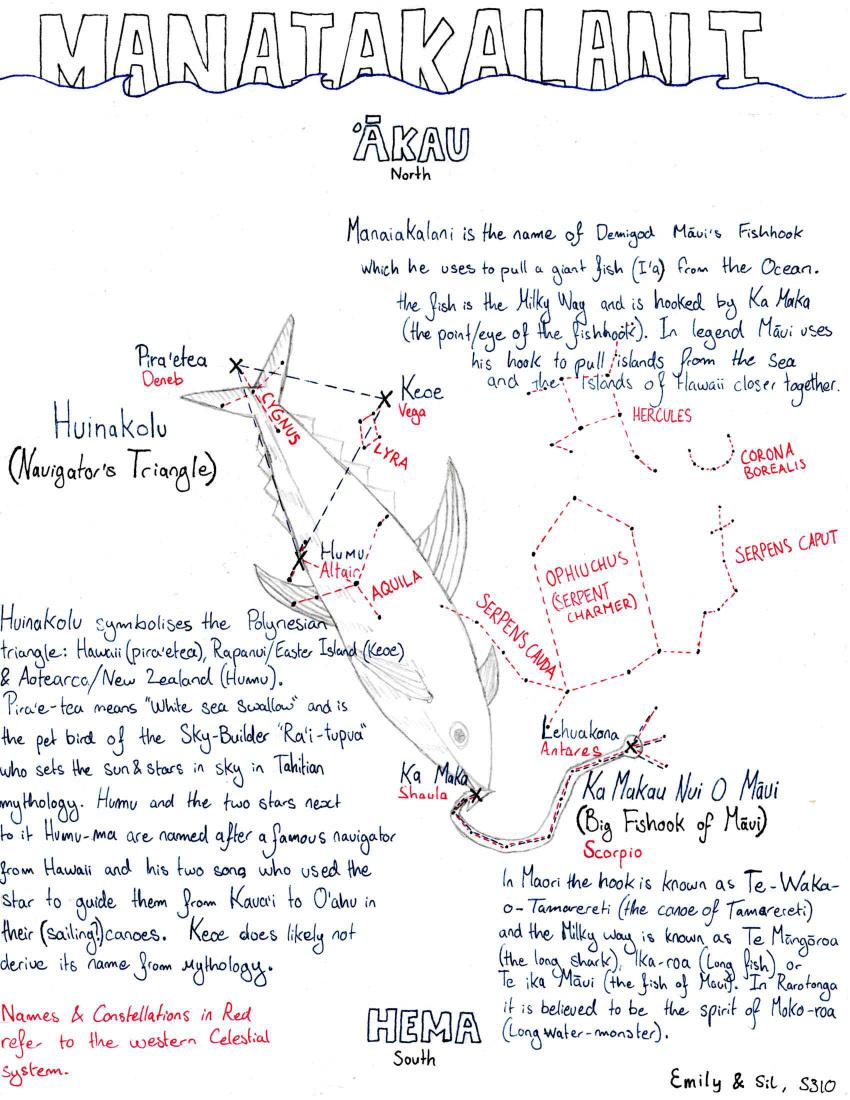 MANAIAKALANI
'ĀKAU
North
Manaiakalani is the name of Demigod Māui's Fishhook
which he uses to pull a giant fish (I'a) from the Ocean.
the fish is the Milky Way and is hooked by Ka Maka
(the point/eye of the fishhook). In legend Māui uses
his hook to pull islands from the sea
and the Islands of Hawaii closer together.
Pira'etea
Deneb
Keoe
Vega
CYGNUS
LYRA
HERCULES
CORONA
BOREALIS
Huinakolu
(Navigator's Triangle)
Humu
Altair
AQUILA
OPHIUCHUS
(SERPENT
CHARMER)
SERPENS CAPUT
SERPENS CAUDA
Huinakolu symbolises the Polynesian
triangle: Hawaii (pira'etea), Rapanui/Easter Island (Keoe)
& Aotearoa/New Zealand (Humu).
Pira'e-tea means "White sea swallow" and is
the pet bird of the Sky-Builder "Ra'i-tupua"
who sets the sun & stars in sky in Tahitian
mythology. Humu and the two stars next
to it Humu-ma are named after a famous navigator
from Hawaii and his two sons who used the
star to guide them from Kaua'i to O'ahu in
their (sailing?) canoes. Keoe does likely not
derive its name from mythology.
Lehuakona
Antares
Ka Maka
Shaula
Ka Makau Nui O Māui
(Big Fishook of Māui)
Scorpio
In Maori the hook is known as Te-Waka-
o-Tamarereti (the canoe of Tamarereti)
and the Milky way is known as Te Mangōroa
(the long shark), Ika-roa (Long fish) or
Te ika Māui (the fish of Maui). In Rarotonga
it is believed to be the spirit of Moko-roa
(Long water-monster).
Names & Constellations in Red
refer to the western Celestial
system.
HEMA
South
Emily & Sil, S310